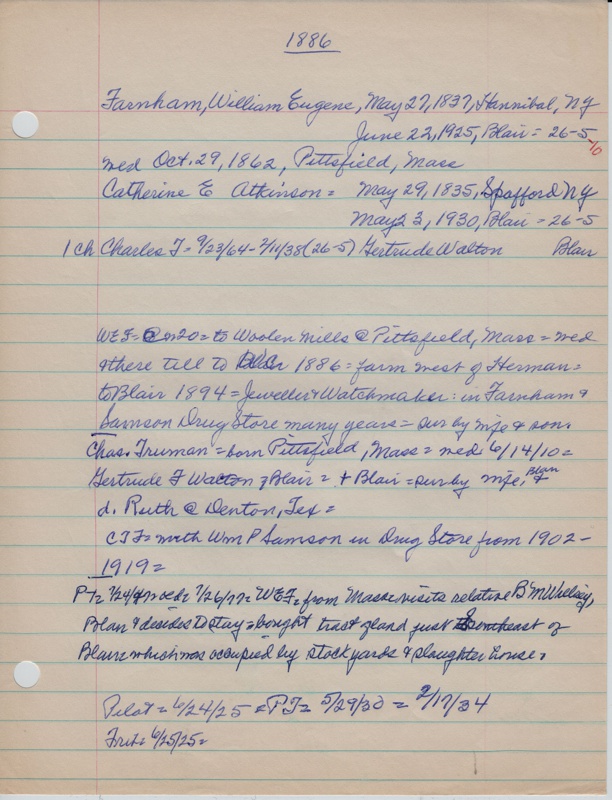 1886
Farnham, William Eugene, May 27, 1837, Hannibal, NY
June 22, 1925, Blair = 26-5
10
med Oct. 29, 1862, Pittsfield, Mass
Catherine E Atkinson = May 29, 1835, Spafford NY
May 23, 1930, Blair = 26-5
1 ch Charles T = 9/23/64 - 2/11/38 (26-5) Gertrude Walton Blair
WEF = @ 20 = to Woolen Mills @ Pittsfield, Mass = med
& there till to 1886 = farm west of Herman =
to Blair 1894 = Jeweller & Watchmaker: in Farnham &
Samson Drug Store many years = sur by wife & son
Chas. Truman = born Pittsfield, Mass = med 6/14/10 =
Gertrude F Walton of Blair = + Blair = sur by wife, Blair &
d. Ruth @ Denton, Tex =
CTF = with Wm P Samson in Drug Store from 1902 -
1919 =
7/26/77 = WEF = from Mass = visits relative B M
Blair & decides to stay = bought tract of land just Southeast of
Blair = which was occupied by stock yards & slaughter house =
Pilot = 6/24/25 = PT = 5/29/30 = 2/17/34
6/25/25 =